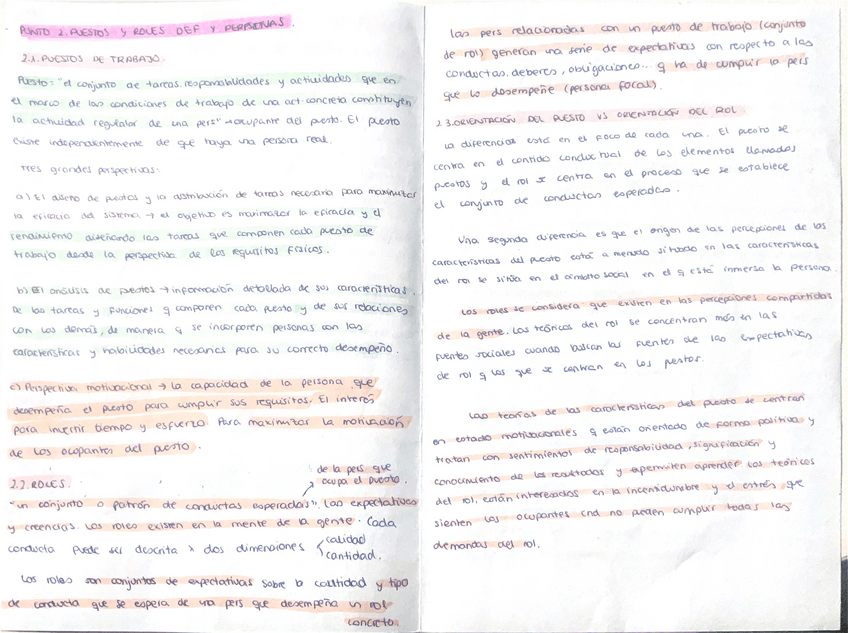 PUNTO 2. PUESTOS Y ROLES DEF Y PERSONAS.
2.1. PUESTOS DE TRABAJO.
Puesto: "el conjunto de tareas, responsabilidades y actividades que en
el marco de las condiciones de trabajo de una act concreta constituyen
la actividad regular de una pers" → ocupante del puesto. El puesto
existe independientemente de que haya una persona real.
Tres grandes perspectivas:
a) El diseño de puestos y la distribución de tareas necesaria para maximizar
la eficacia del sistema → el objetivo es maximizar la eficacia y el
rendimiento diseñando las tareas que componen cada puesto de
trabajo desde la perspectiva de los requisitos físicos.
b) El análisis de puestos → información detallada de sus características.
De las tareas y funciones q componen cada puesto y de sus relaciones
con los demás, de manera q se incorporen personas con las
características y habilidades necesarias para su correcto desempeño.
c) Perspectiva motivacional → la capacidad de la persona que
desempeña el puesto para cumplir sus requisitos. El interés
para invertir tiempo y esfuerzo. Para maximizar la motivación
de los ocupantes del puesto.
2.2. ROLES.
de la pers que
ocupa el puesto.
"un conjunto o patrón de conductas esperadas". Las expectativas
y creencias. Los roles existen en la mente de la gente. Cada
conducta puede ser descrita x dos dimensiones
calidad
cantidad.
Los roles son conjuntos de expectativas sobre la cantidad y tipo
de conducta que se espera de una pers que desempeña un rol
concreto
Las pers relacionadas con un puesto de trabajo (conjunto
de rol) generan una serie de expectativas con respecto a las
conductas, deberes, obligaciones... q ha de cumplir la pers
que lo desempeñe (persona focal).
2.3. ORIENTACIÓN DEL PUESTO VS ORIENTACIÓN DEL ROL.
La diferencias está en el foco de cada una. El puesto se
centra en el contido conductual de los elementos llamados
puestos y el rol se centra en el proceso que se establece
el conjunto de conductas esperadas.
Una segunda diferencia es que el origen de las percepciones de las
características del puesto está a menudo situado en las características
del rol se sitúa en el ámbito social en el q está inmersa la persona.
Los roles se considera que existen en las percepciones compartidas
de la gente. Los teóricos del rol se concentran más en las
fuentes sociales cuando buscan las fuentes de las expectativas
de rol q los que se centran en los puestos.
Las teorías de las características del puesto se centran
en estado motivacionales q están orientado de forma positiva y
tratan con sentimientos de responsabilidad, significación y
conocimiento de los resultados y permiten aprender Los teóricos
del rol, están interesados en la incertidumbre y el estrés que
sienten los ocupantes cnd no pueden cumplir todas las
demandas del rol.